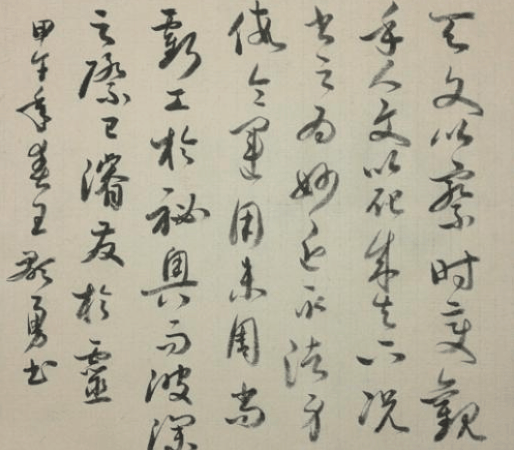 天文以察时变觀
乎人文以化成天下况
书之为妙近取诸身
假令運用未周尚
虧工於秘奥而波瀾
之際已濬发於靈
甲午年春王勇书